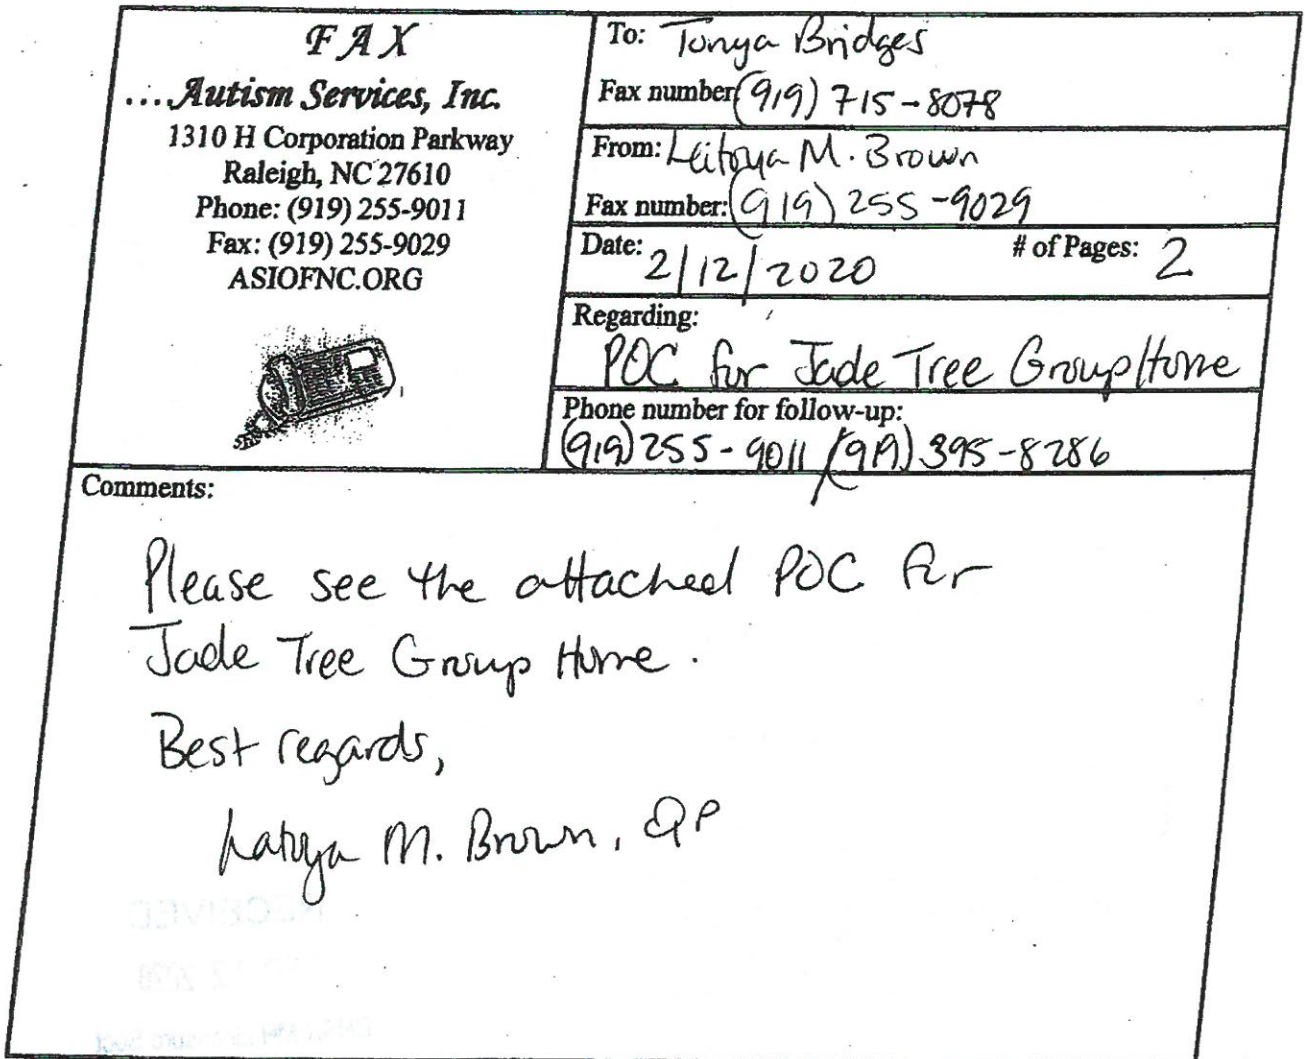 FAX
....Autism Services, Inc.
1310 H Corporation Parkway
Raleigh, NC 27610
Phone: (919) 255-9011
Fax: (919) 255-9029
ASIOFNC.ORG
To: Tonya Bridges
Fax number: (919) 715-8078
From: M. Brown
Fax number: (919) 255-9029
Date: 2/12/2020 # of Pages: 2
Regarding:
POC for Jade Tree Group Home
Phone number for follow-up:
(919) 255-9011 / (919) 395-8286
Comments:
Please see the attached POC for
Jade Tree Group Home.
Best regards,
Latoya M. Brown, QP
RECEIVED
2 2020